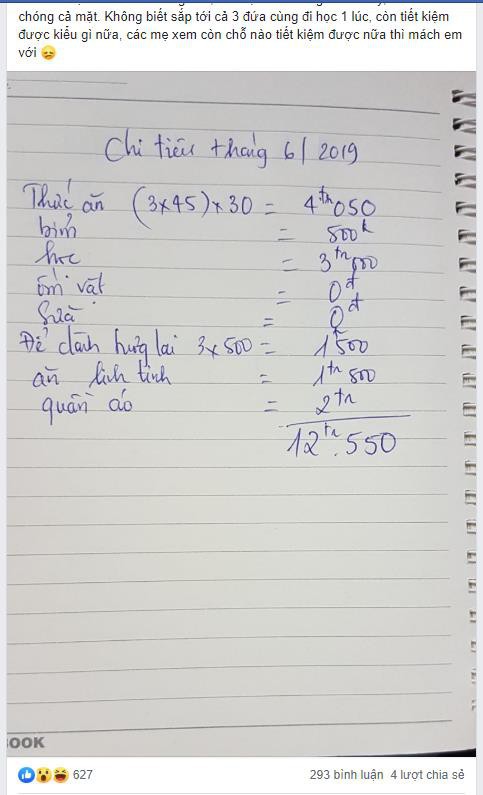 chóng cả mặt. Không biết sắp tới cả 3 đứa cùng đi học 1 lúc, còn tiết kiệm
được kiểu gì nữa, các mẹ xem còn chỗ nào tiết kiệm được nữa thì mách em
với 😞
Chi tiêu tháng 6/2019
Thức ăn (3x45)x30 = 4tr050
bỉm = 500k
học = 3tr
ốm vặt = 0đ
Sữa = 0đ
Để dành hưởng lai 3x500 = 1t500
ăn linh tinh = 1tr500
quần áo = 2tr
12tr.550
OOK
627
293 bình luận 4 lượt chia sẻ